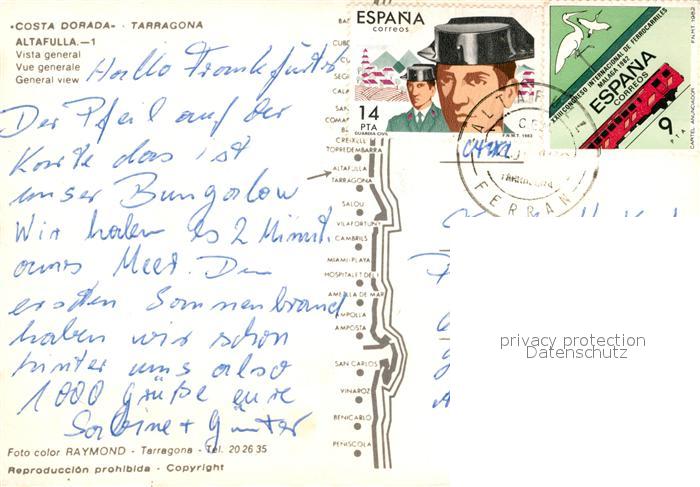 «COSTA DORADA» - TARRAGONA
ALTAFULLA.—1
Vista general
Vue generale
General view
Hallo Frankfurter
Der Pfeil auf der
Karte das ist
unser Bungalow
Wir haben es 2 Minut.
ans Meer. Den
ersten Sonnenbrand
haben wir schon
hinter uns also
1000 Grüße eure
Sabine + Günter
Foto color RAYMOND - Tarragona - Tel. 20 26 35
Reproducción prohibida - Copyright
CREIXELL
TORREDEMBARRA
ALTAFULLA
TARRAGONA
SALOU
VILAFORTUNY
CAMBRILS
MIAMI-PLAYA
HOSPITALET DEL I
AMETLLA DE MAR
AMPOLLA
AMPOSTA
SAN CARLOS
VINAROZ
BENICARLO
PEÑISCOLA
ESPAÑA
correos
14
PTA
GUARDIA CIVIL
F.N.M.T. 1983
XXIII CONGRESO INTERNACIONAL DE FERROCARRILES
MALAGA 1982
ESPAÑA
CORREOS
9
PTA
F.N.M.T. 1982
privacy protection
Datenschutz